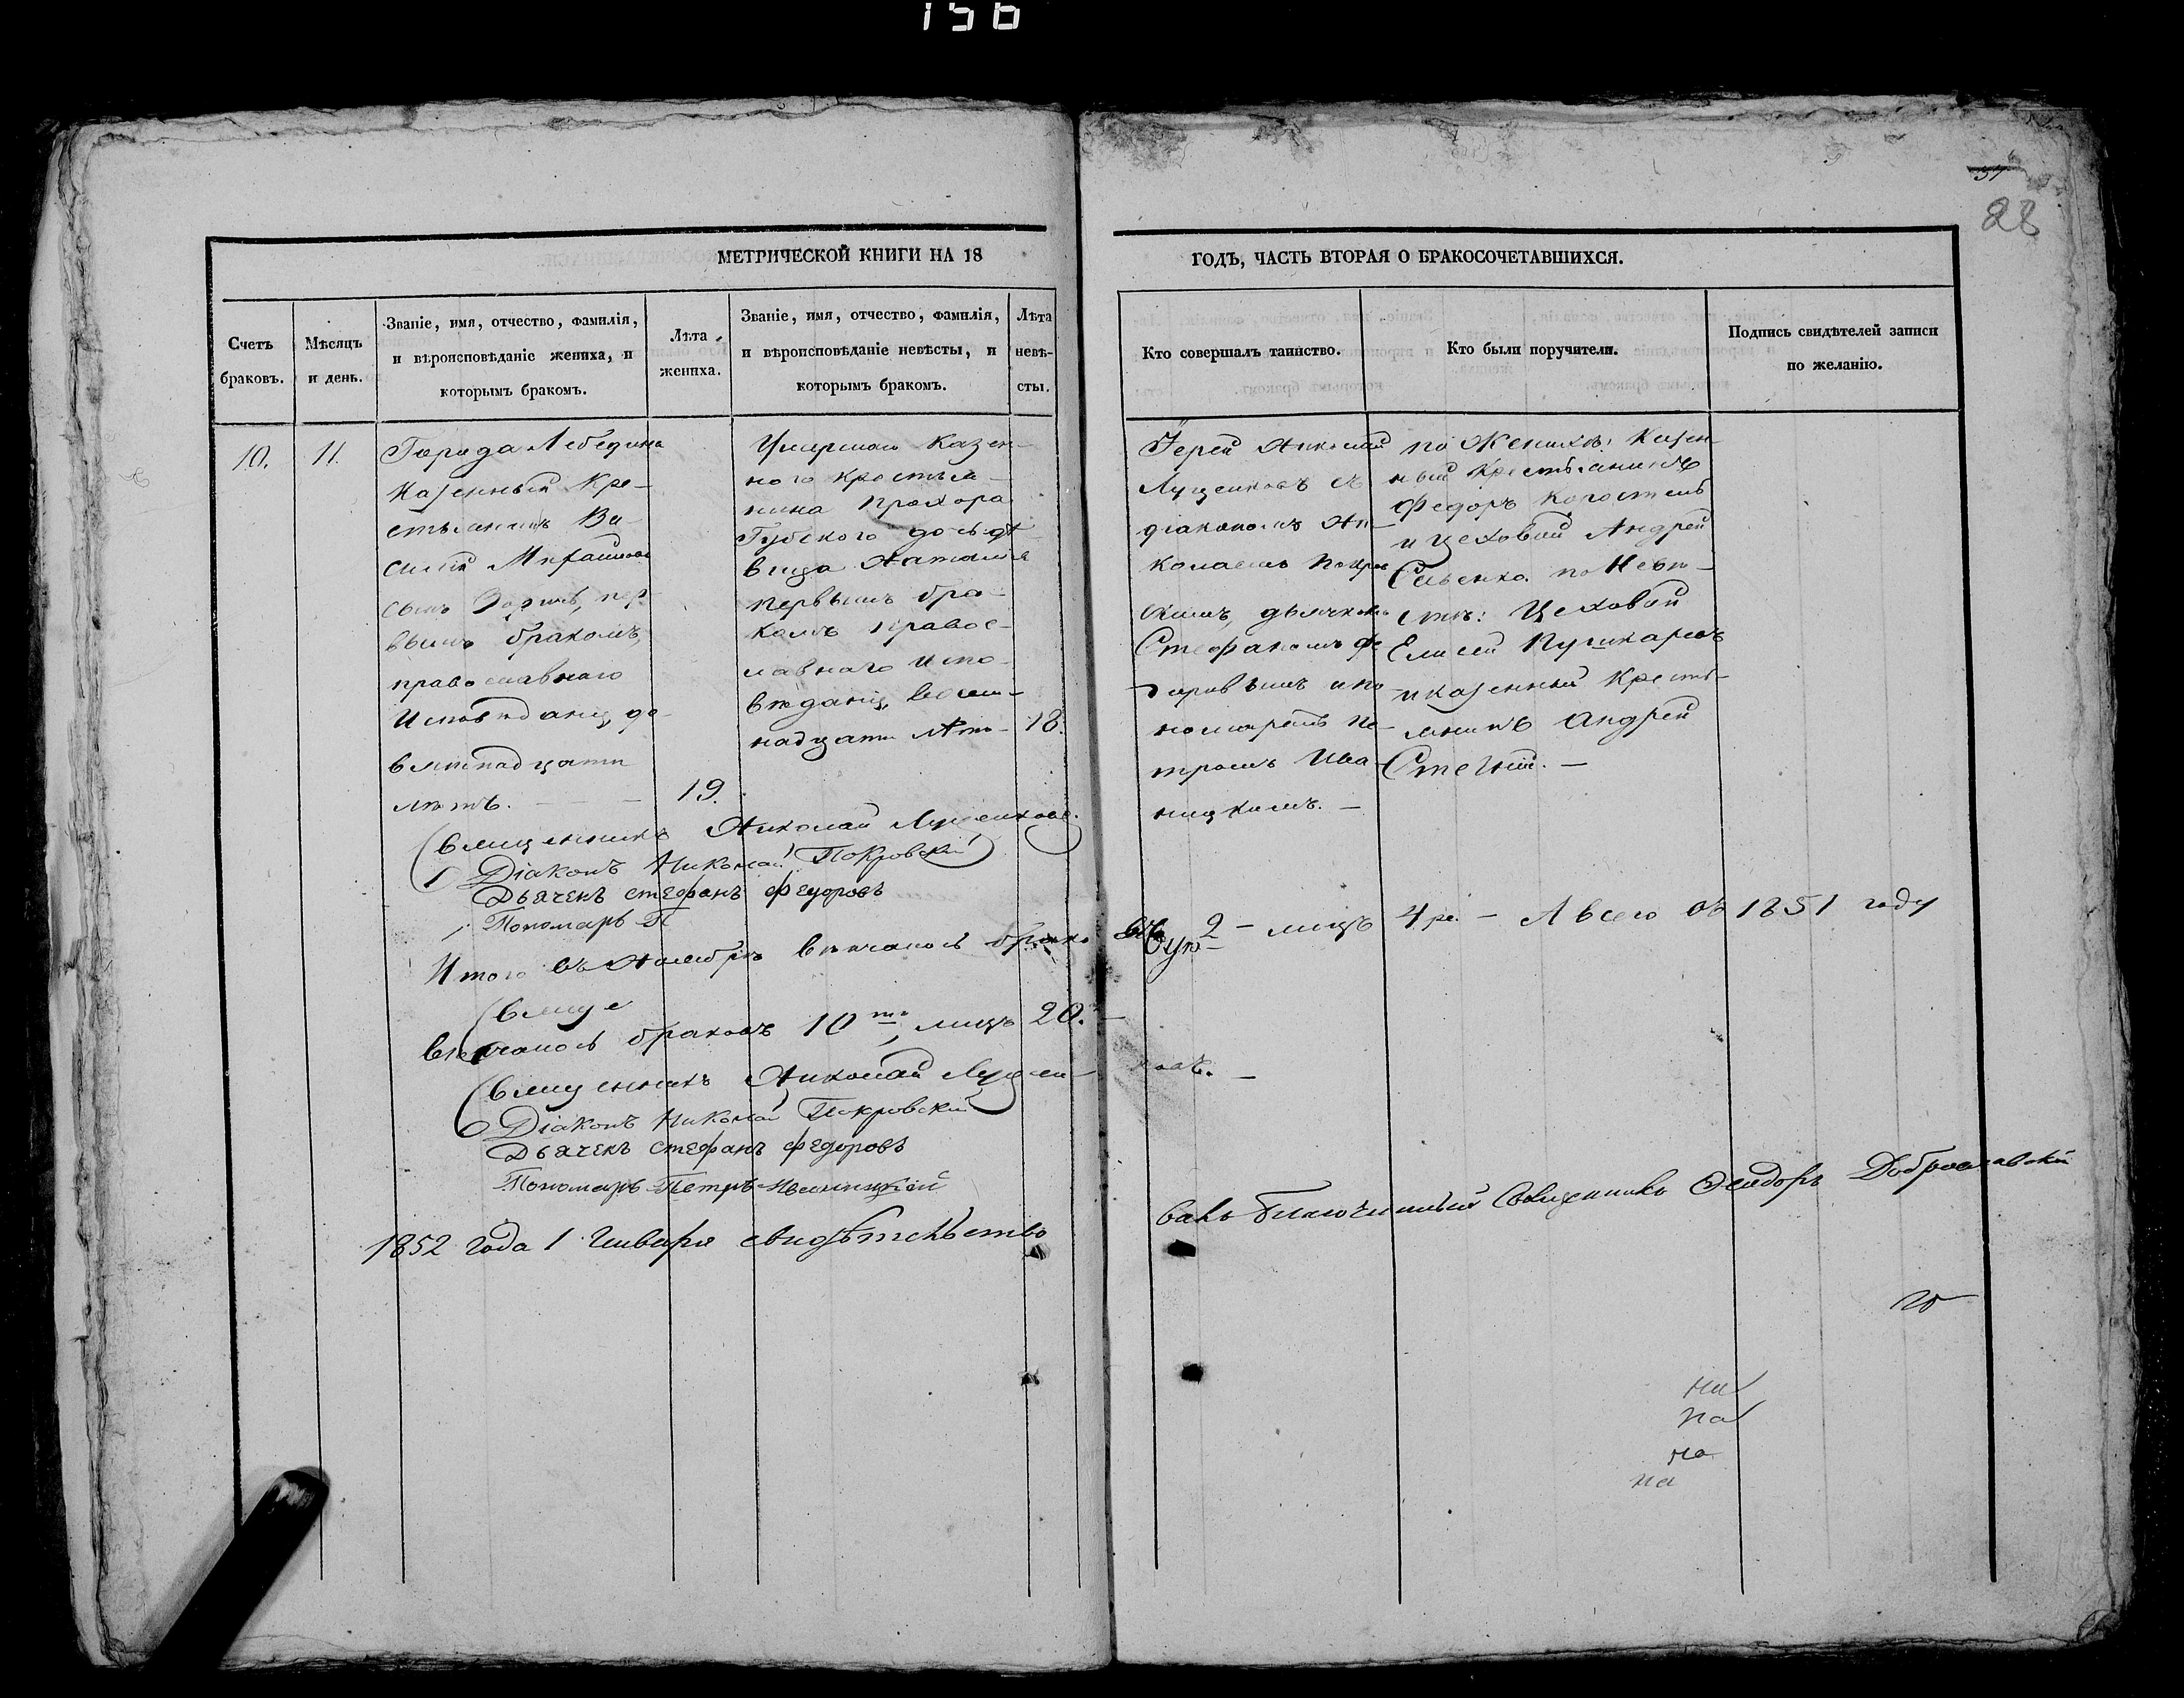 156
88
МЕТРИЧЕСКОЙ КНИГИ НА 18
ГОДЪ, ЧАСТЬ ВТОРАЯ О БРАКОСОЧЕТАВШИХСЯ.
Счетъ браковъ.
Мѣсяцъ и день.
Званіе, имя, отчество, фамилія, и вѣроисповѣданіе жениха, и которымъ бракомъ.
Лѣта жениха.
Званіе, имя, отчество, фамилія, и вѣроисповѣданіе невѣсты, и которымъ бракомъ.
Лѣта невѣ-сты.
Кто совершалъ таинство.
Кто были поручители.
Подпись свидѣтелей записи по желанію.
10.
11.
Города Лебедина
Казенный Кре-
стьянинъ Ва-
силій
сынъ пер-
вымъ бракомъ,
православнаго
Исповѣданія, де-
вятнадцати
лѣтъ. — — —
19.
Умершаго Казен-
ного Крестья-
нина Прохора
Губского дочь дѣ-
вица Наталія
первымъ бра-
комъ Правос-
лавнаго Испо-
вѣданія, восем-
надцати Лѣтъ-
18.
Іерей Николай
Лущенковъ съ
діакономъ Ни-
колаемъ Покров
скимъ, дьячкомъ
Стефаномъ Фе
доровымъ и по-
номаремъ Пе-
тромъ Ива-
ницкимъ. —
по Женихѣ: Казен-
ный Крестьянинъ
Федоръ
и цеховой Андрей
по Невѣ-
стѣ: Цеховой
Елисей Пушкаревъ
и казенный Кресть-
янинъ Андрей
Священникъ Николай Лущенковъ.
Діаконъ Николай Покровскій
Дьячекъ Стефанъ Федоровъ
Пономарь П
Итого въ Ноябрѣ вѣнчалось браковъ 2 — лицъ 4ре. — А всего въ 1851 году
Свяще
вѣнчалось браковъ 10ть, лицъ 20. —
Священникъ Николай Лущен-ковъ. —
Діаконъ Николай Покровскій
Дьячекъ Стефанъ Федоровъ
Пономарь Петръ Иваницкій
1852 года 1 Января свидѣтельство
валъ Благочинный Священникъ Феодоръ Доброславскій
на
на
на
на